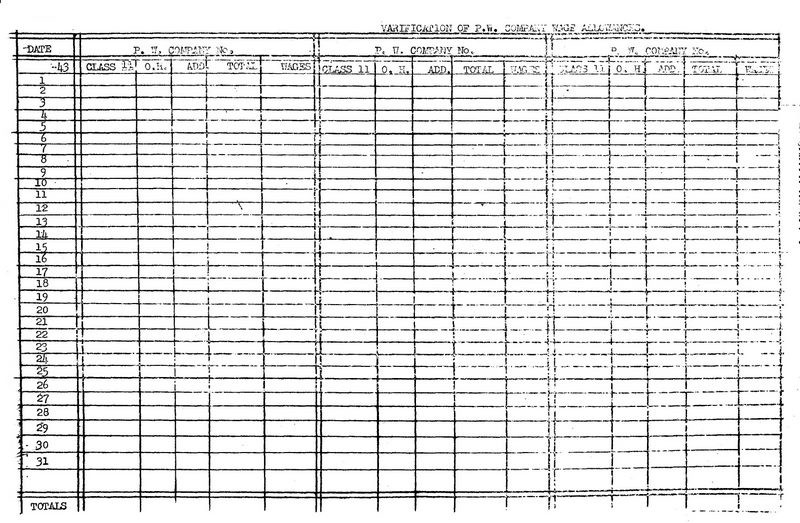 VARIFICATION OF P.W. COMPANY WAGE ALLOWANCES.
DATE P. W. COMPANY No. P. W. COMPANY No. P. W. COMPANY No.
-43 CLASS 11 O.H. ADD. TOTAL WAGES CLASS 11 O. H. ADD. TOTAL WAGES CLASS 11 O. H. ADD. TOTAL WAGES
1
2
3
4
5
6
7
8
9
10
11
12
13
14
15
16
17
18
19
20
21
22
23
24
25
26
27
28
29
30
31
TOTALS